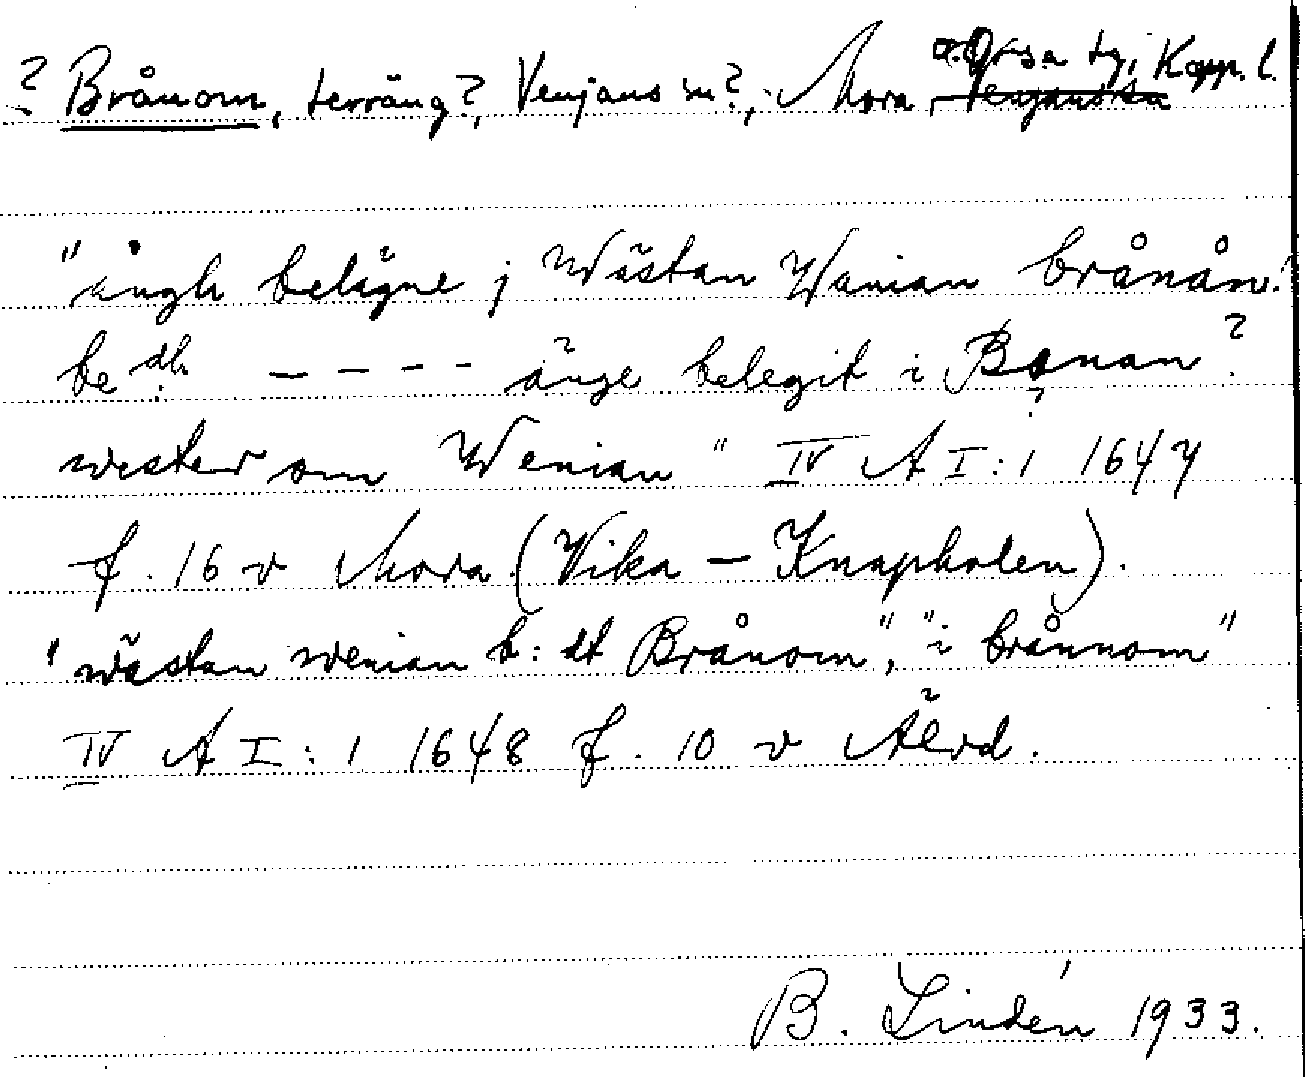 ? Brånom, terräng?, Venjans sn?, Mora o. Orsa tg, Kopp. l.
"ängh belägne j Wästan Wenian brånån?
be dh. - - - - änge belegit i Bonan ?
wester om Wenian" IV A I:1 1647
f. 16 v Mora (Vika - Knapholen).
"wästan wenian b: dt Brånom", "i brånnom"
IV A I:1 1648 f. 10 v Älvd.
B. Lindén 1933.